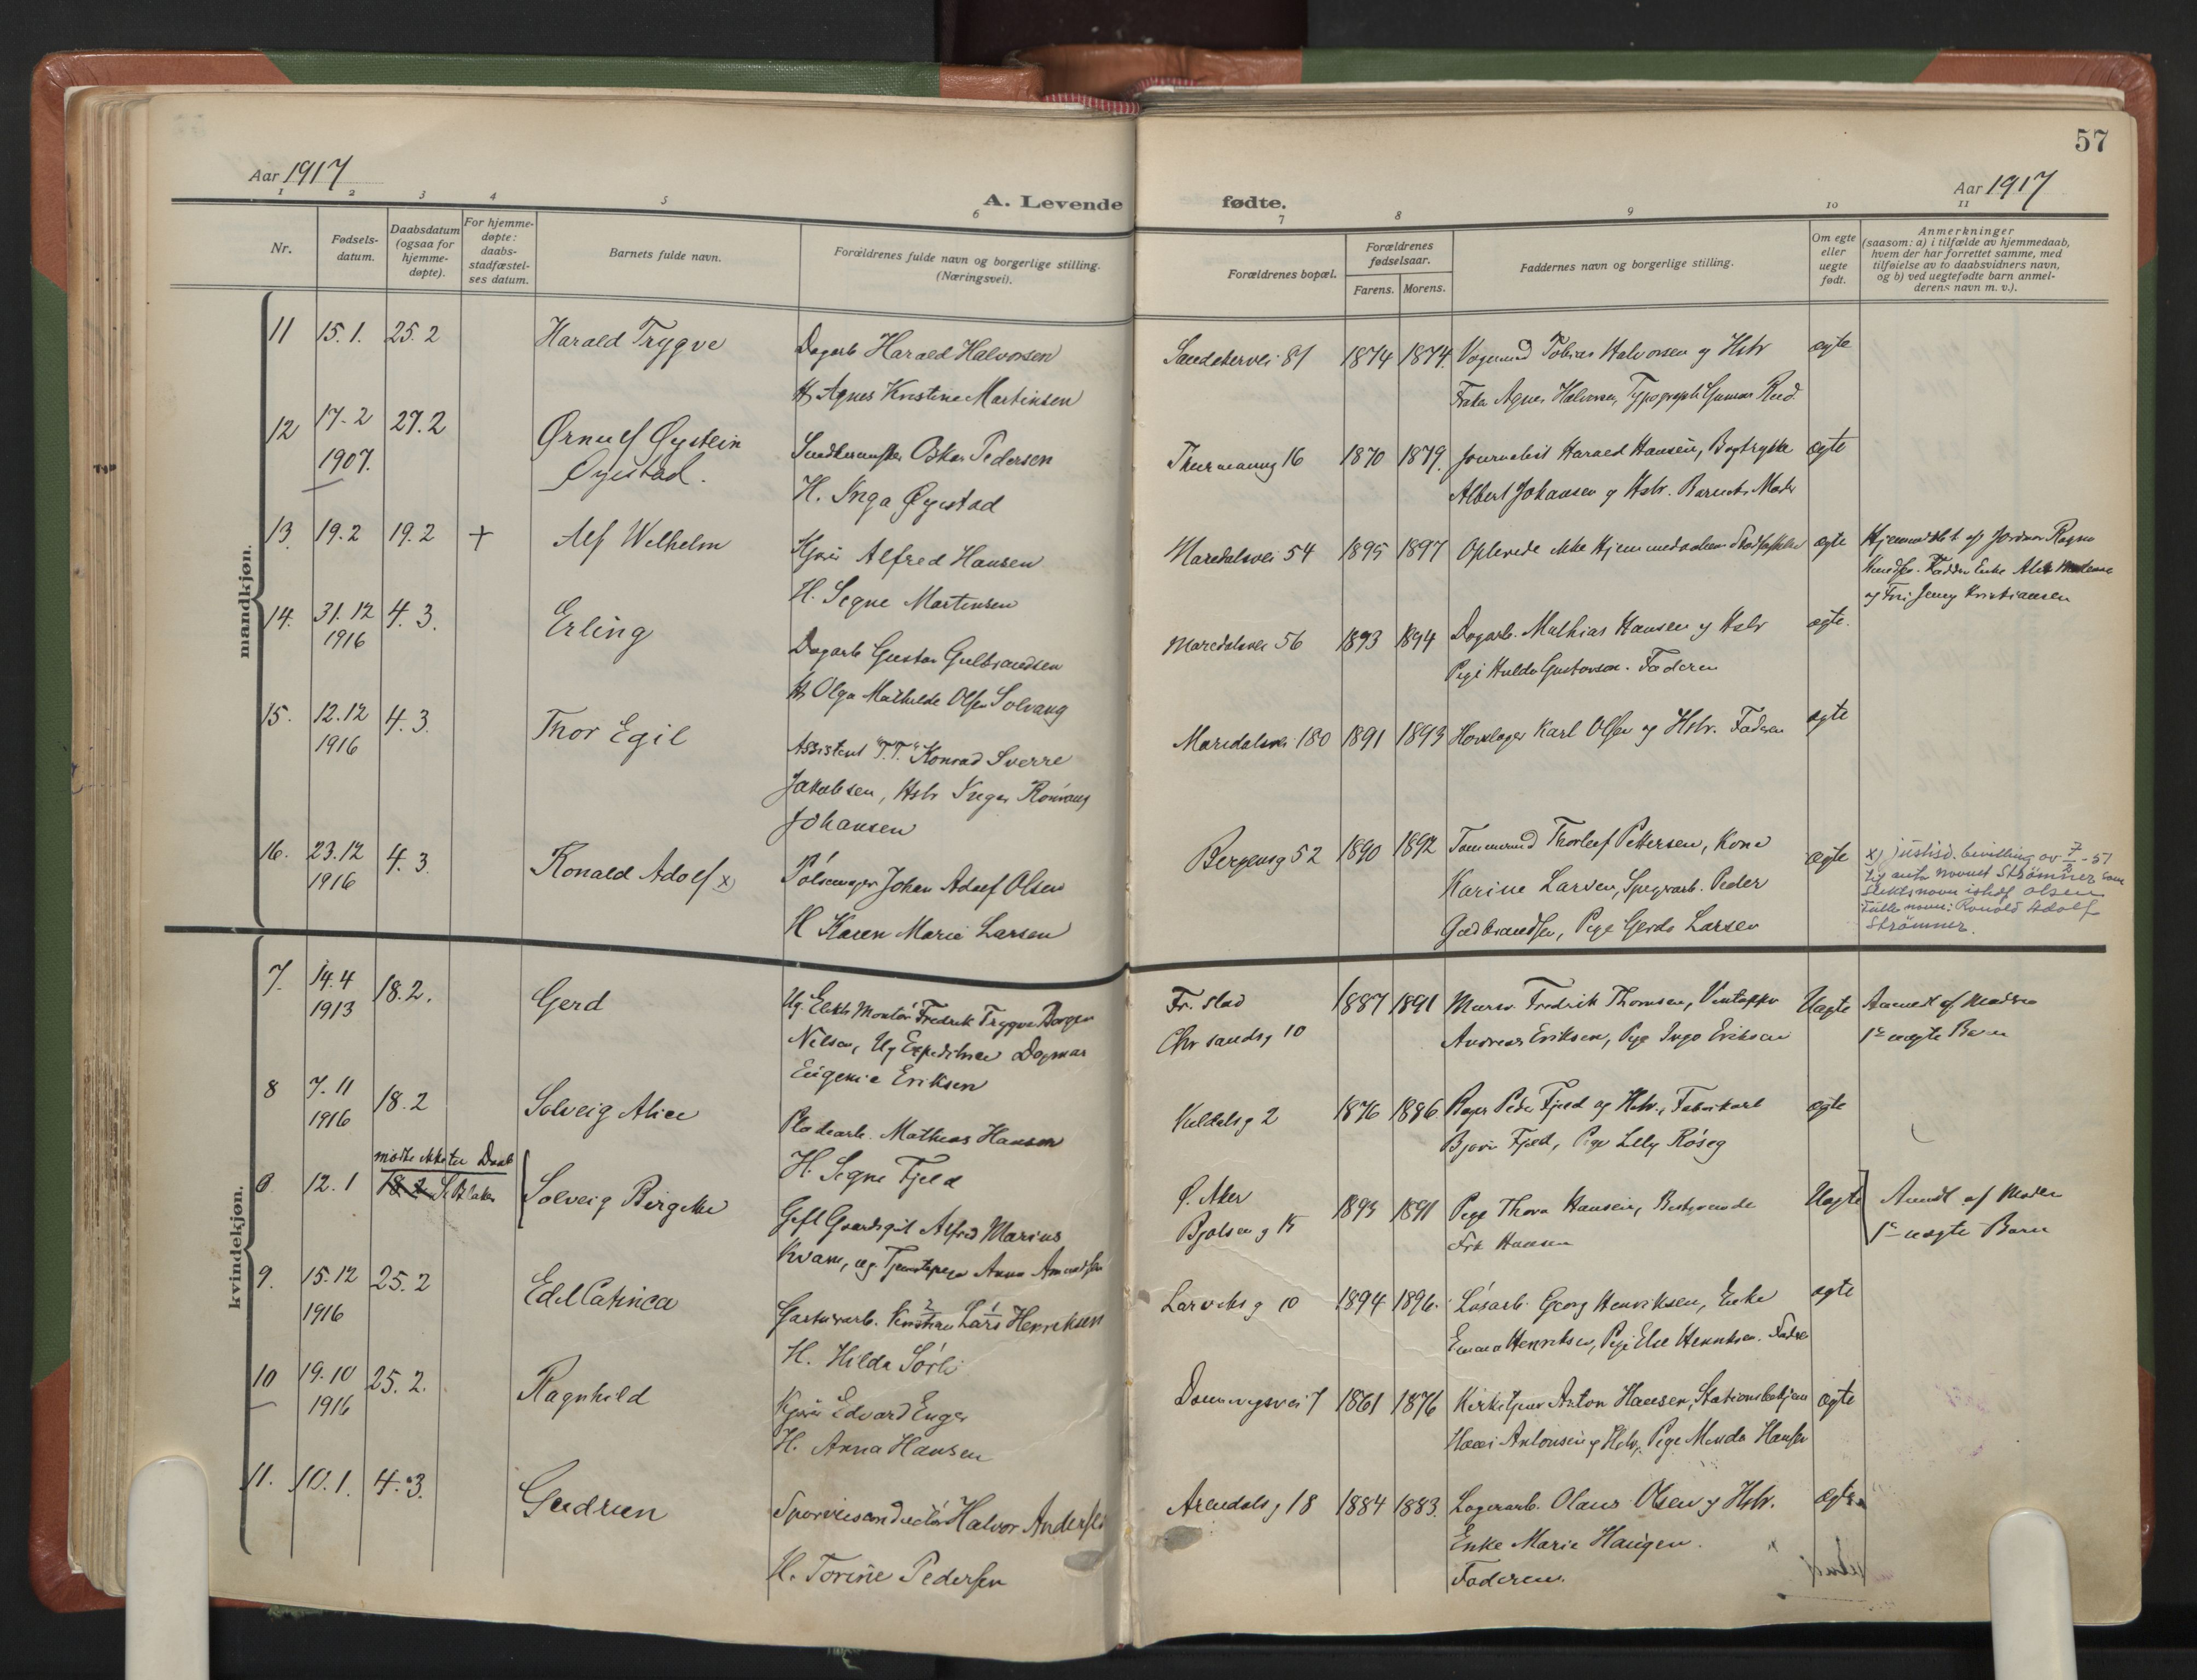 57
Aar 1917
Aar 1917
A. Levende fødte.
1 2 3 4 5 6 7 8 9 10 11
Nr.
Fødsels-
datum.
Daabsdatum
(ogsaa for
hjemme-
døpte).
For hjemme-
døpte:
daabs-
stadfæstel-
ses datum.
Barnets fulde navn.
Forældrenes fulde navn og borgerlige stilling.
(Næringsvei).
Forældrenes bopæl.
Forældrenes
fødselsaar.
Farens. Morens.
Faddernes navn og borgerlige stilling.
Om egte
eller
uegte
født.
Anmerkninger
(saasom: a) i tilfælde av hjemmedaab,
hvem der har forrettet samme, med
tilføielse av to daabsvidners navn,
og b) ved uegtefødte barn anmel-
derens navn m. v.).
mandkjøn.
11 15.1. 25.2 Harald Trygve Dagarb Harald Halvorsen Sandakervei 81 1874 1874. Tobias Halvorsen og Hstr ægte
H. Agnes Kristine Martinsen Agnes Halvorsen, Typograph Gunnar Rud.
12 17.2 27.2 Ørnulf Øystein Oskar Pedersen 16 1870 1879. Journalist Harald Hansen, Bogtrykke ægte
1907. Øyestad. H. Inga Øyestad Albert Johansen og Hstr. Barnets Moder
13. 19.2 19.2 + Alf Wilhelm Kjører Alfred Hansen Maridalsvei 54 1895 1897 Oplevede ikke Hjemmedaabens Stadfæstelse ægte Hjemmedøbt af Jordmor Ragna
H. Signe Martinsen Knudsen. Faddere Enke
og Frk Jenny Kristiansen
14. 31.12 4.3. Erling Dagarb Gustav Gulbrandsen Maridalsvei 56 1893 1894 Dagarb. Mathias Hansen og Hstr ægte.
1916 H. Olga Mathilde Olsen Solvang Pige Hulda Gustavsen. Faderen
15. 12.12 4.3. Thor Egil Assistent "T.T." Konrad Sverre Maridalsvei 180 1891 1893 Hovslager Karl Olsen og Hstr. Faderen ægte
1916 Jakobsen, Hstr Inger Rønnaug
Johansen
16. 23.12 4.3. Ronald Adolf x) Pølsemager Johan Adolf Olsen Bergensg 52 1890 1892 Tømmermd Thorleif Pettersen, Kone ægte x) justisd. bevilling av 7/2 - 51
1916 H Karen Marie Larsen Karine Larsen, Peder til anta navnet Strømner som
Gudbrandsen, Pige Gerda Larsen slektsnavn istdf. Olsen
Fulle navn: Ronald Adolf
Strømner.
kvindekjøn.
7. 14.4 18.2. Gerd Ug. Elektr Montør Fredrik Trygve Borgen Fr. stad 1887 1891 Murer Fredrik Thomsen, Uægte Anmeldt af Moderen
1913 Nilsen, Ug Expeditrice Dagmar Chr sandsg 10 Andreas Eriksen, Pige Inga Eriksen 1ste uægte Barn
Eugenie Eriksen
8 7.11 18.2 Solveig Alice Pladearb. Mathias Hansen Kildalsg 2 1876 1886 Peder Fjeld og Hstr., Fabrikarb ægte
1916 H. Signe Fjeld Fjeld, Pige Lilly Røseg
møtte ikke til Daab
8. 12.1 18.2 Solveig Birgitte Gaardsgut Alfred Marius Ø. Aker 1893 1891 Pige Thora Hansen, Uægte Anmeldt af Moder
Kvam, ug. Tjenestepige Anna Amundsen Bjølseng 15 Frk Hansen 1ste uægte Barn
9. 15.12 25.2 Edel Catinca Gartnerarb. Kristian Lars Henriksen Larviksg 10 1894 1896. Løsarb. Georg Henriksen, Enke ægte
1916 H. Hilda Sørli Emma Henriksen, Pige Else Henriksen. Fader
10 19.10 25.2. Ragnhild Kjører Edvard Enger 7 1861 1876 Kirketjener Anton Hansen, Stationsbetjen ægte
1916 H. Anna Hansen Antonsen og Hstr, Pige Minda Hansen
11. 10.1. 4.3. Gudrun Sporveisconductør Halvor Andersen Arendalsg 18 1884 1883. Lagerarb. Olaus Olsen og Hstr. ægte
H. Torine Pedersen Enke Marie Haugen.
Faderen.